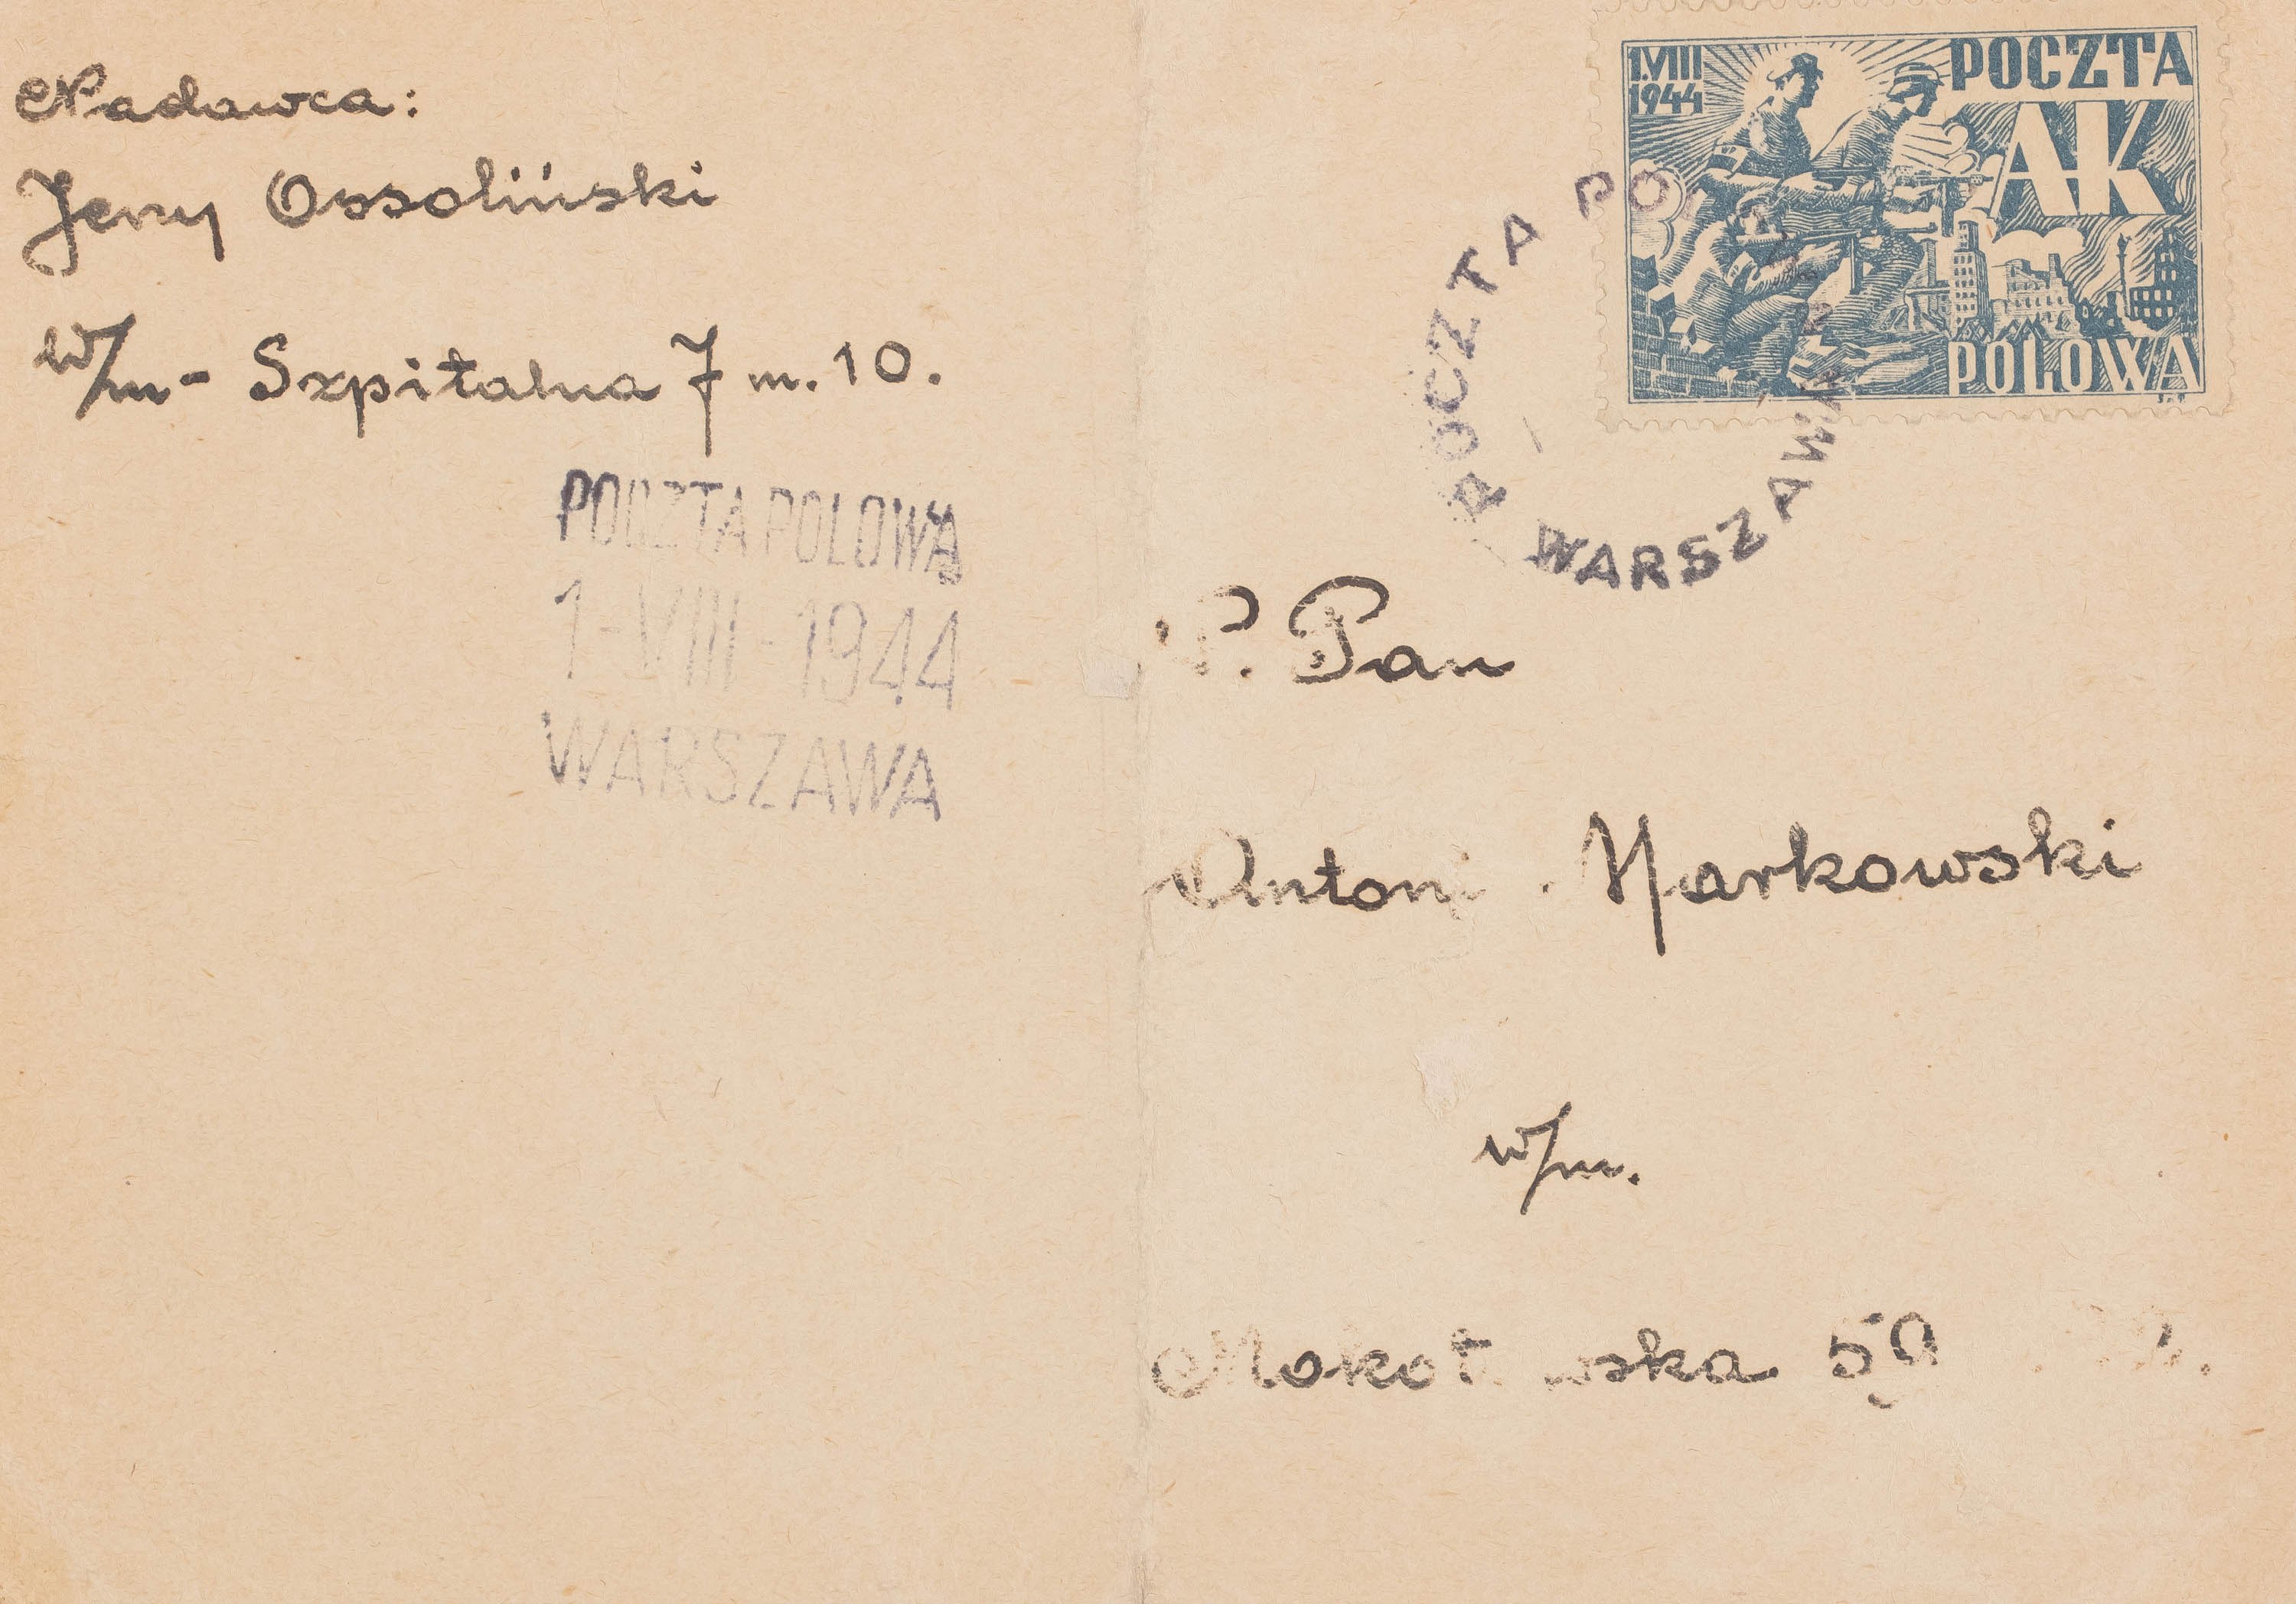 Nadawca:
Jerzy Ossoliński
w/m - Szpitalna 7 m. 10.
POCZTA POLOWA
1-VIII-1944
WARSZAWA
1.VIII
1944
POCZTA
AK
POLOWA
POCZTA POLOWA
WARSZAWA
P. Pan
Antoni Markowski
w/m.
Mokot wska 59